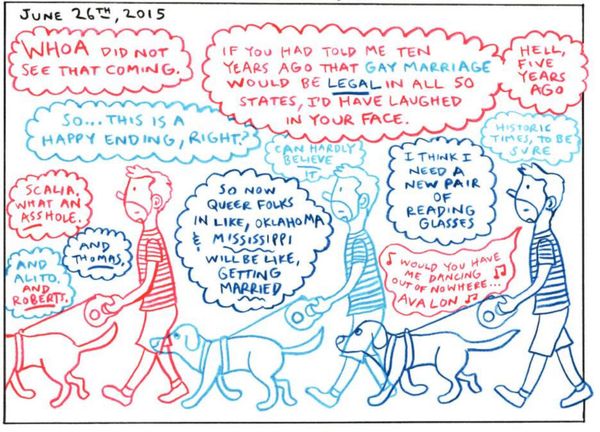 JUNE 26TH, 2015
WHOA DID NOT
SEE THAT COMING.
IF YOU HAD TOLD ME TEN
YEARS AGO THAT GAY MARRIAGE
WOULD BE LEGAL IN ALL 50
STATES, I'D HAVE LAUGHED
IN YOUR FACE.
HELL,
FIVE
YEARS
AGO
SO...THIS IS A
HAPPY ENDING, RIGHT?
CAN HARDLY
BELIEVE
IT
HISTORIC
TIMES, TO BE
SURE
SCALIA.
WHAT AN
ASSHOLE.
AND
THOMAS.
AND
ALITO.
AND
ROBERTS.
SO NOW
QUEER FOLKS
IN LIKE, OKLAHOMA
& MISSISSIPPI
WILL BE LIKE,
GETTING
MARRIED
I THINK I
NEED A
NEW PAIR
OF
READING
GLASSES
♪ WOULD YOU HAVE
ME DANCING ♫
OUT OF NOWHERE...
AVALON ♫